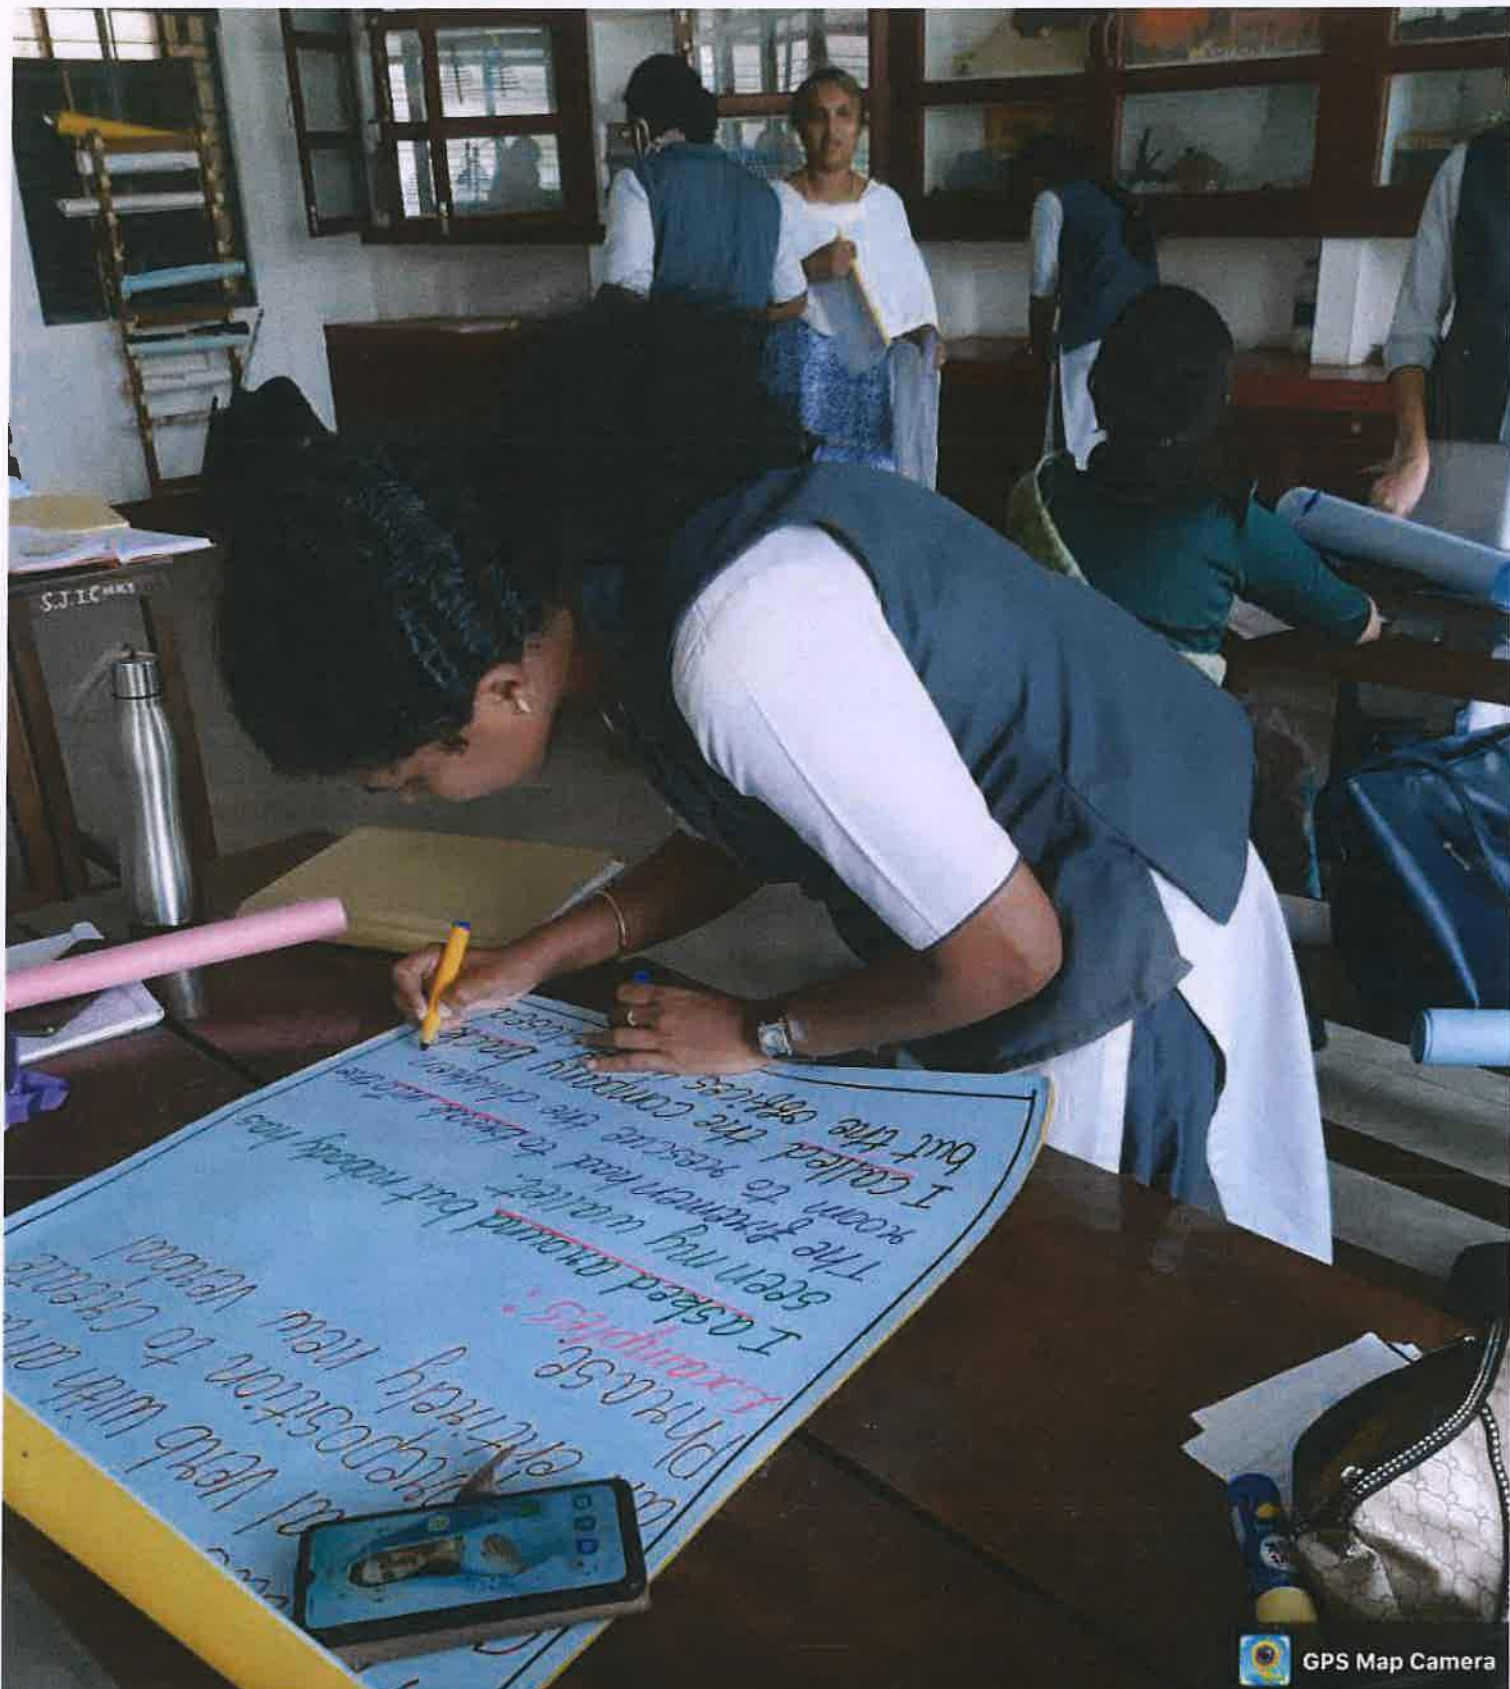 S.J.I.C
verb with
preposition to create
an entirely new verbal
Phrase
Examples:
I asked around but nobody has
seen my wallet.
The firemen had to break into the
room to rescue the children
I called the company back
but the offices closed
GPS Map Camera